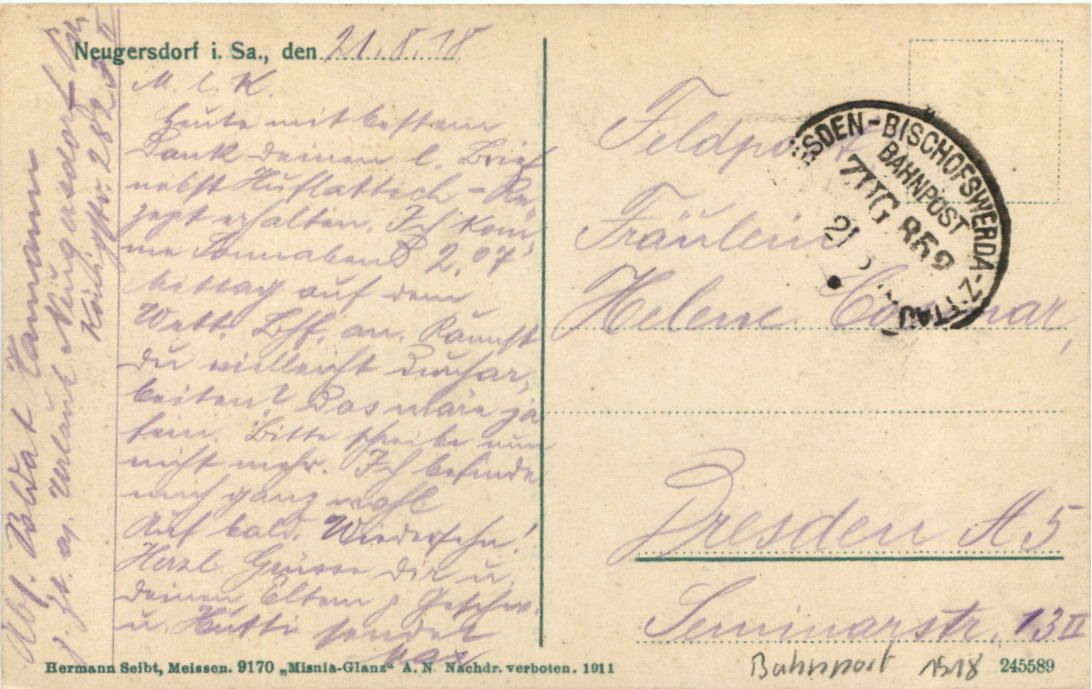 Neugersdorf i. Sa., den 21.8.18
M. l. K.
Heute mit bestem
Dank deinen l. Brief
nebst Huflattich-Re-
zept erhalten. Ich kom-
me Sonnabend 2.07
mittag auf dem
Wett. Bhf. an. Kannst
du vielleicht durchar-
beiten? Das wäre ja
fein. Bitte schreibe nun
nicht mehr. Ich befinde
mich ganz wohl
Auf bald. Wiedersehn!
Herzl. Grüsse dir u.
deinen Eltern Geschw.
u. Mutti sendet
Max
Abs. Soldat Hamann
z. Zt. a. Urlaub Neugersdorf i/Sa.
282
Feldpost
Fräulein
Helene
Dresden A 5
Seminarstr. 13 II
DRESDEN-BISCHOFSWERDA-ZITTAU
BAHNPOST
ZUG 859
21
Hermann Seibt, Meissen. 9170 „Misnia-Glanz“ A. N. Nachdr. verboten. 1911
Bahnpost 1918
245589